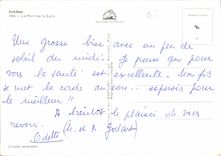 Antibes
Le Port de la Salis
Une grosse bise avec un peu de
soleil du midi. Je pense que pour
vous la santé est excellente. Mon fils
se met la corde au cou... espérons pour
le meilleur !!
A bientôt le plaisir de vous
revoir.
Odette M. et R. Godart